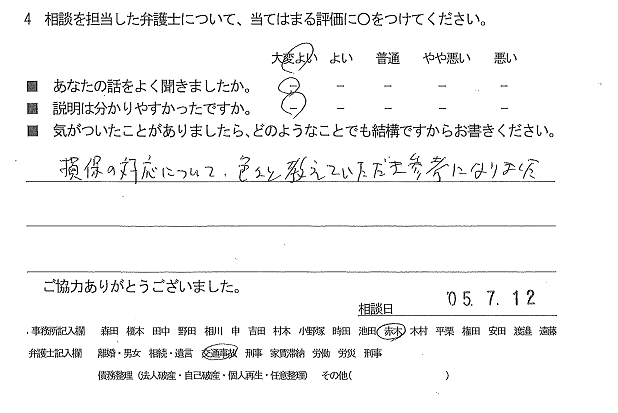 4 相談を担当した弁護士について、当てはまる評価に○をつけてください。
大変よい よい 普通 やや悪い 悪い
■ あなたの話をよく聞きましたか。 － － － － －
■ 説明は分かりやすかったですか。 － － － － －
■ 気がついたことがありましたら、どのようなことでも結構ですからお書きください。
損保の対応について、色々と教えていただき参考になりました
ご協力ありがとうございました。
相談日 '05.7.12
事務所記入欄 森田 榎本 田中 野田 相川 申 吉田 村本 小野塚 時田 池田 赤木 木村 平栗 権田 安田 渡邉 遠藤
弁護士記入欄 離婚・男女 相続・遺言 交通事故 刑事 家賃滞納 労働 労災 刑事
債務整理（法人破産・自己破産・個人再生・任意整理） その他( )